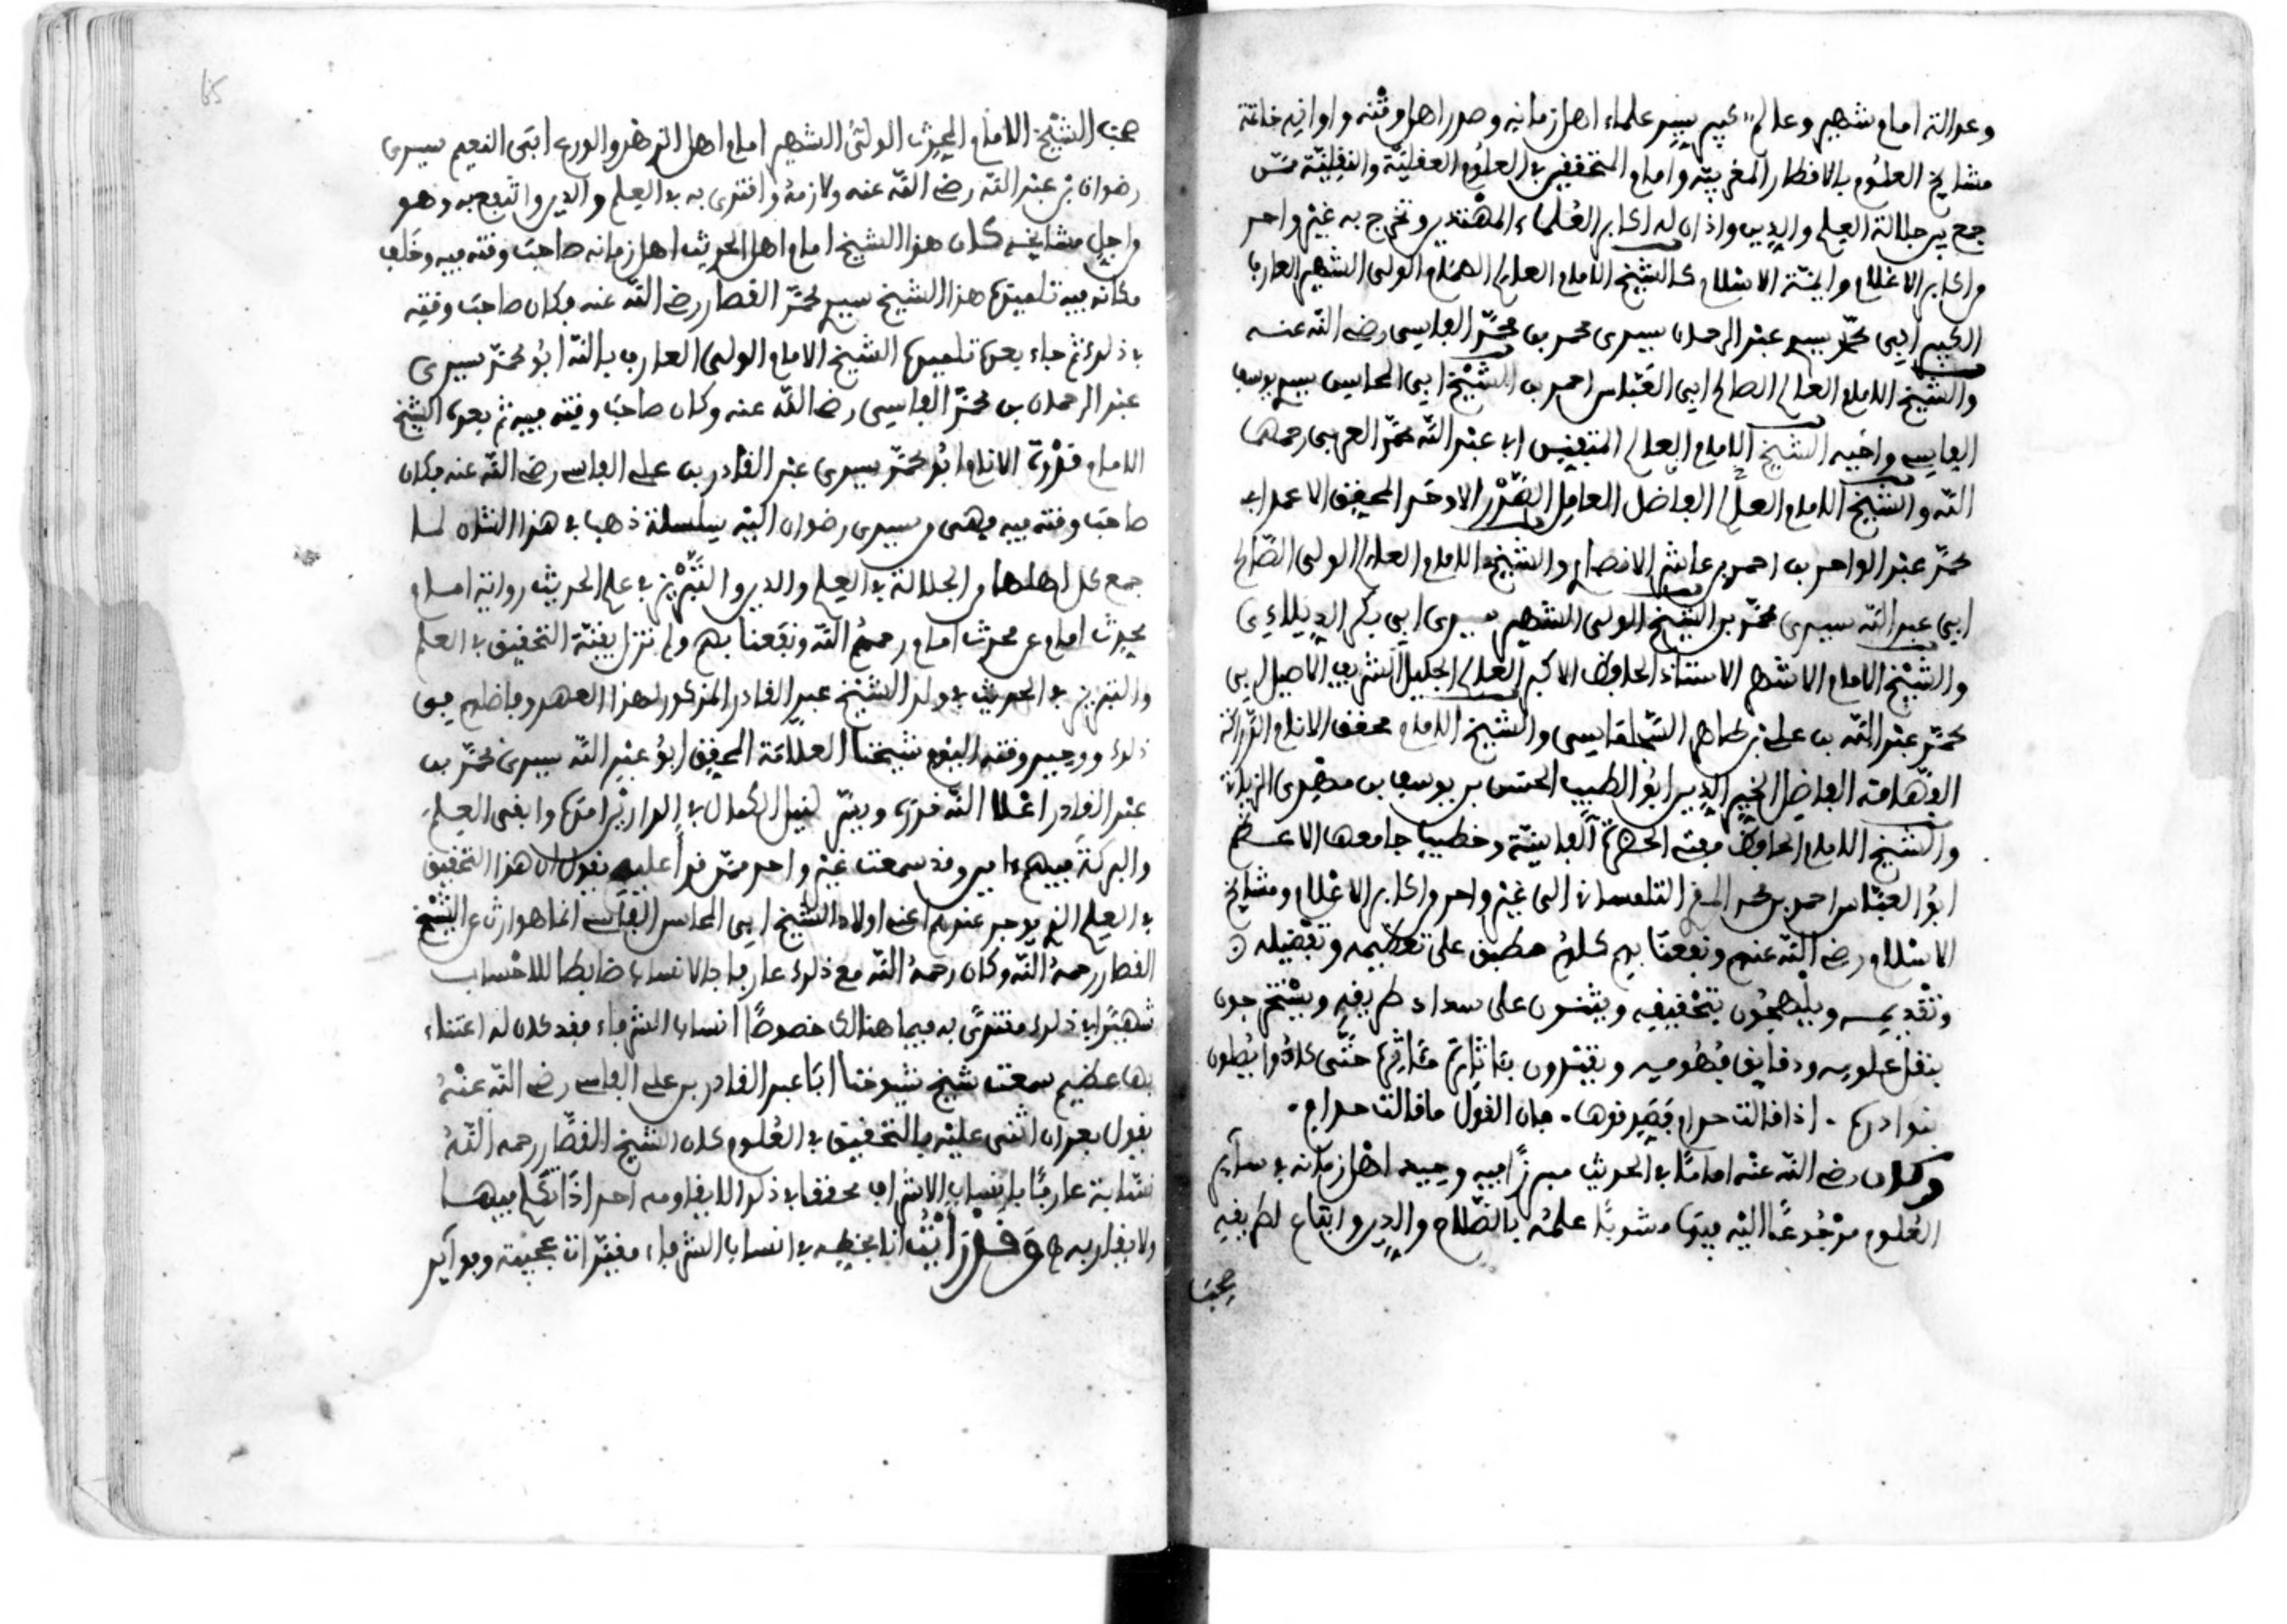 وعدالة امام شهير وعالم كبير بين علماء اهل زمانه وصدر اهل وقته واوانه خاتمة
مشايخ العلوم بالاقطار المغربية وامام المتحققين في العلوم العقلية والنقلية ممن
جمع بين جلالة العلم والدين واذعان له اكابر العلماء المهتدين وتخرج به غير واحد
من اكابر الاعلام وايمة الاسلام كالشيخ الامام العالم الهمام الولي الشهير العارف
الكبير ابي محمد سيدي عبد الرحمان بن سيدي محمد بن محمد الفاسي رضي الله عنه
والشيخ الامام العالم الصالح ابي العباس احمد بن الشيخ ابي المحاسن سيدي يوسف
الفاسي واخيه الشيخ الامام العالم المتفنن ابي عبد الله محمد العربي رحمهما
الله والشيخ الامام العالم الفاضل العامل الصدر الاوحد المحقق الاعمد ابي
محمد عبد الواحد بن احمد بن عاشر الانصاري والشيخ الامام العالم الولي الصالح
ابي عبد الله سيدي محمد بن الشيخ الولي الشهير سيدي ابي بكر الديلاءي
والشيخ الامام الاشهر الاستاذ الحافظ الاكبر العالم الجليل الشريف الاصيل ابي
محمد عبد الله بن علي بن طاهر السجلماسي والشيخ الامام محقق الانام الدراكة
الفهامة الفاضل الخير الدين ابو الطيب الحسن بن يوسف بن مهدي الزياتي
والشيخ الامام الحافظ مفتي الحضرة الفاسية وخطيب جامعها الاعظم
ابو العباس احمد بن محمد المقري التلمساني الى غير واحد من اكابر الاعلام ومشايخ
الاسلام رضي الله عنهم ونفعنا بهم كلهم مطبق على تعظيمه وتفضيله
وتقديمه ويلهجون بتحقيقه ويثنون على سداد طريقه ويستخرجون
بنقل علومه ودقايق فهومه ويقتدون بمآثره حتى كانوا يبطون
بنوادره . اذا قالت حذام فصدقوها . فان القول ما قالت حذام .
وكان رضي الله عنه اماما في الحديث مبرزا فيه وحيد اهل زمانه في ساير
العلوم مرجوعا اليه فيها مشوبا علمه بالصلاح والدين واتباع لطريقه
صحب
صحب الشيخ الامام المحدث الولي الشهير امام اهل الزهد والورع ابي النعيم سيدي
رضوان بن عبد الله رضي الله عنه ولازمه واقتدى به في العلم والدين وانتفع به وهو
من اجل مشايخه كان هذا الشيخ امام اهل الحديث اهل زمانه صاحب وقته فيه وخلف
مكانه فيه تلميذه هذا الشيخ سيدي محمد القصار رضي الله عنه فكان صاحب وقته
في ذلك ثم جاء بعده تلميذه الشيخ الامام الولي العارف بالله ابو محمد سيدي
عبد الرحمان بن محمد الفاسي رضي الله عنه وكان صاحب وقته فيه ثم بعده الشيخ
الامام قدوة الانام ابو محمد سيدي عبد القادر بن علي الفاسي رضي الله عنه فكان
صاحب وقته فيه فهي من سيدي رضوان اليه سلسلة ذهب في هذا الشان لما
جمع كل اهلها من الجلالة في العلم والدين والتبريز في علم الحديث رواية امام
محدث امام عن محدث امام رحمهم الله ونفعنا بهم ولم تزل بقية التحقيق في العلم
والتبريز في الحديث في ولد الشيخ عبد القادر المذكور لهذا العهد وفاضلهم في
ذلك ووحيد وقته اليوم شيخنا العلامة المحقق ابو عبد الله سيدي محمد بن
عبد القادر اعلا الله قدره ويسر لنيل الكمال في الدارين امره وابقى العلم
والبركة فيهم ءامين وقد سمعت غير واحد ممن قرا عليه يقول ان هذا التحقيق
في العلم الذي يوجد عندهم اعني اولاد الشيخ ابي المحاسن الفاسي انما هو ارث عن الشيخ
القصار رحمه الله وكان رحمه الله مع ذلك عارفا بالانساب ضابطا للاحساب
شهيرا في ذلك مقتدى به فيما هنالك خصوصا انساب الشرفاء فقد كان له اعتناء
بها عظيم سمعت شيخ شيوخنا ابا عبد القادر بن علي الفاسي رضي الله عنه
يقول بعد ان اثنى عليه بالتحقيق في العلوم كان الشيخ القصار رحمه الله
نسابة عارفا بانساب الاشراف محققا في ذلك لا يقاومه احد اذا تكلم فيها
ولا يقاربه وقد رايت انا بخطه في انساب الشرفاء مقيدات عجيبة وفوايد